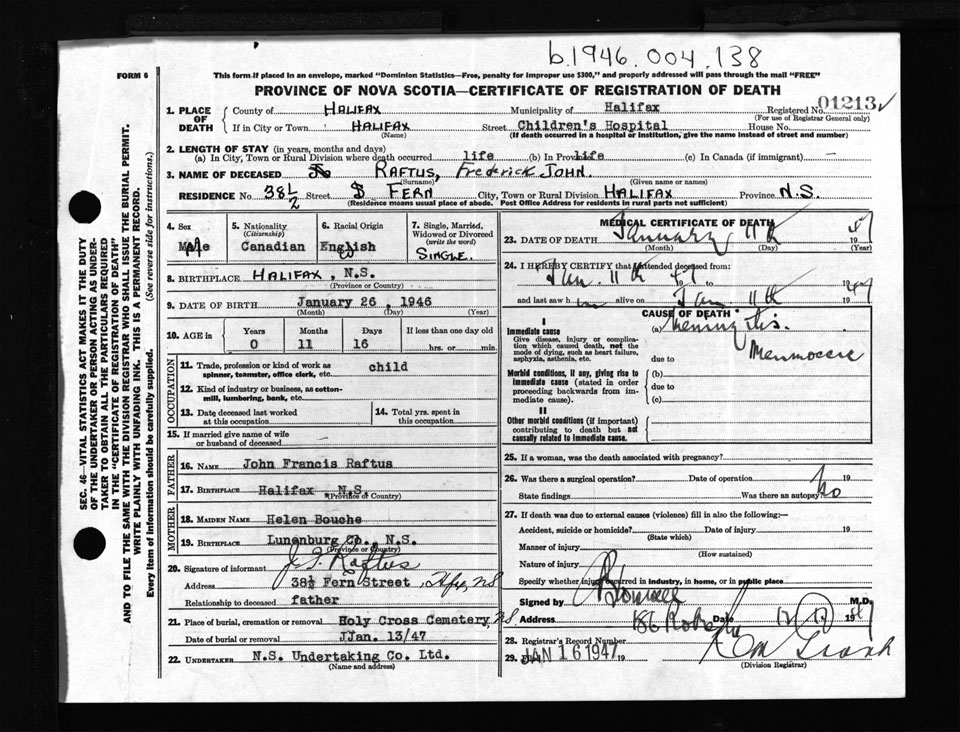 b.1946.004.138
FORM 6
This form if placed in an envelope, marked "Dominion Statistics—Free, penalty for improper use $300," and properly addressed will pass through the mail "FREE"
PROVINCE OF NOVA SCOTIA—CERTIFICATE OF REGISTRATION OF DEATH
1. PLACE OF DEATH
County of HALIFAX Municipality of Halifax Registered No. 01213
(For use of Registrar General only)
If in City or Town HALIFAX Street Children's Hospital House No.
(Name) (If death occurred in a hospital or institution, give the name instead of street and number)
2. LENGTH OF STAY (in years, months and days)
(a) In City, Town or Rural Division where death occurred life (b) In Province life (c) In Canada (if immigrant) —
3. NAME OF DECEASED RAFTUS, Frederick JOHN.
(Surname) (Given name or names)
RESIDENCE No 38 1/2 Street FERN City, Town or Rural Division HALIFAX Province N.S.
(Residence means usual place of abode. Post Office Address for residents in rural parts not sufficient)
4. Sex
Male
5. Nationality
(Citizenship)
Canadian
6. Racial Origin
English
7. Single, Married, Widowed or Divorced
(write the word)
SINGLE.
8. BIRTHPLACE HALIFAX, N.S.
(Province or Country)
9. DATE OF BIRTH January 26, 1946
(Month) (Day) (Year)
10. AGE in
Years Months Days If less than one day old
0 11 16 hrs. or min.
OCCUPATION
11. Trade, profession or kind of work as child
spinner, teamster, office clerk, etc.
12. Kind of industry or business, as cotton-
mill, lumbering, bank, etc.
13. Date deceased last worked
at this occupation
14. Total yrs. spent in
this occupation
15. If married give name of wife
or husband of deceased
FATHER
16. NAME John Francis Raftus
17. BIRTHPLACE Halifax N.S.
(Province or Country)
MOTHER
18. MAIDEN NAME Helen Bouche
19. BIRTHPLACE Lunenburg Co., N.S.
(Province or Country)
20. Signature of informant J. F. Raftus
Address 38½ Fern Street, Hfx, NS
Relationship to deceased father
21. Place of burial, cremation or removal Holy Cross Cemetery, NS
Date of burial or removal JJan. 13/47
22. UNDERTAKER N.S. Undertaking Co. Ltd.
(Name and address)
MEDICAL CERTIFICATE OF DEATH
23. DATE OF DEATH January 11th 1947
(Month) (Day) (Year)
24. I HEREBY CERTIFY that I attended deceased from:
Jan. 11th 47 to 1947
and last saw h alive on Jan 11th 1947
CAUSE OF DEATH
I
Immediate cause
Give disease, injury or complica-
tion which caused death, not the
mode of dying, such as heart failure,
asphyxia, asthenia, etc.
(a) Meningitis.
due to
Morbid conditions, if any, giving rise to
immediate cause (stated in order
proceeding backwards from im-
mediate cause).
(b)
due to
(c)
II
Other morbid conditions (if important)
contributing to death but not
causally related to immediate cause.
25. If a woman, was the death associated with pregnancy?
26. Was there a surgical operation? Date of operation 19
State findings Was there an autopsy? No
27. If death was due to external causes (violence) fill in also the following:—
Accident, suicide or homicide? Date of injury 19
(State which)
Manner of injury
(How sustained)
Nature of injury
Specify whether injury occurred in industry, in home, or in public place
Signed by M.D.
Address 186 Date 1947
28. Registrar's Record Number
29. JAN 16 1947 19
(Division Registrar)
SEC. 46—VITAL STATISTICS ACT MAKES IT THE DUTY
OF THE UNDERTAKER OR PERSON ACTING AS UNDER-
TAKER TO OBTAIN ALL THE PARTICULARS REQUIRED
IN THE "CERTIFICATE OF REGISTRATION OF DEATH"
AND TO FILE THE SAME WITH THE DIVISION REGISTRAR WHO SHALL ISSUE THE BURIAL PERMIT.
WRITE PLAINLY WITH UNFADING INK. THIS IS A PERMANENT RECORD.
Every item of information should be carefully supplied. (See reverse side for instructions.)